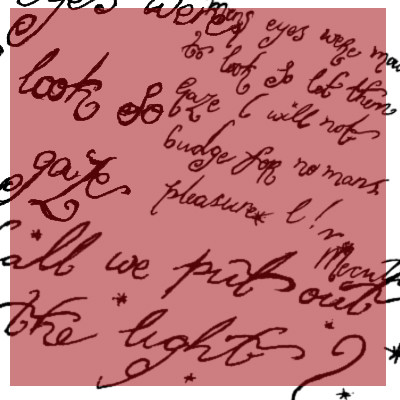 eyes were
mens eyes were ma
to look so let them
look so
gaze I will not
budge for no mans
gaze
pleasure I!
Mercut
all we put out
the light ?